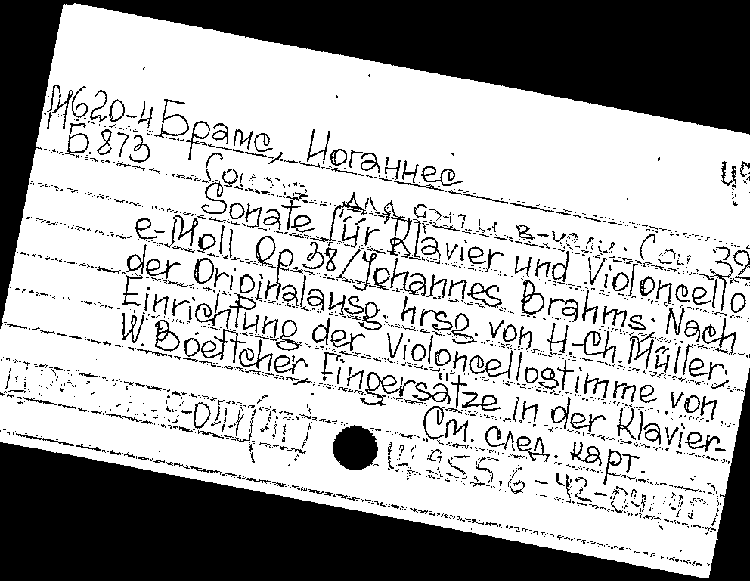 М620-4 Брамс, Иоганнес
Б.873
для в-чели. Соч 39
Sonate für Klavier und Violoncello
e-Moll Op.38/Johannes Brahms. Nach
der Originalausg. hrsg. von H-Ch.Müller,
Einrichtung der Violoncellostimme von
W.Boettcher, Fingersätze in der Klavier-
См. след. карт.
Щ 955.6-42-04